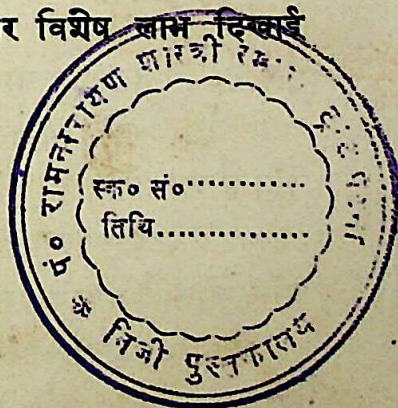 र विशेष लाभ दिखाई
पं० रामनारायण शास्त्री
स्क० सं०..............
तिथि................
* निजी पुस्तकालय